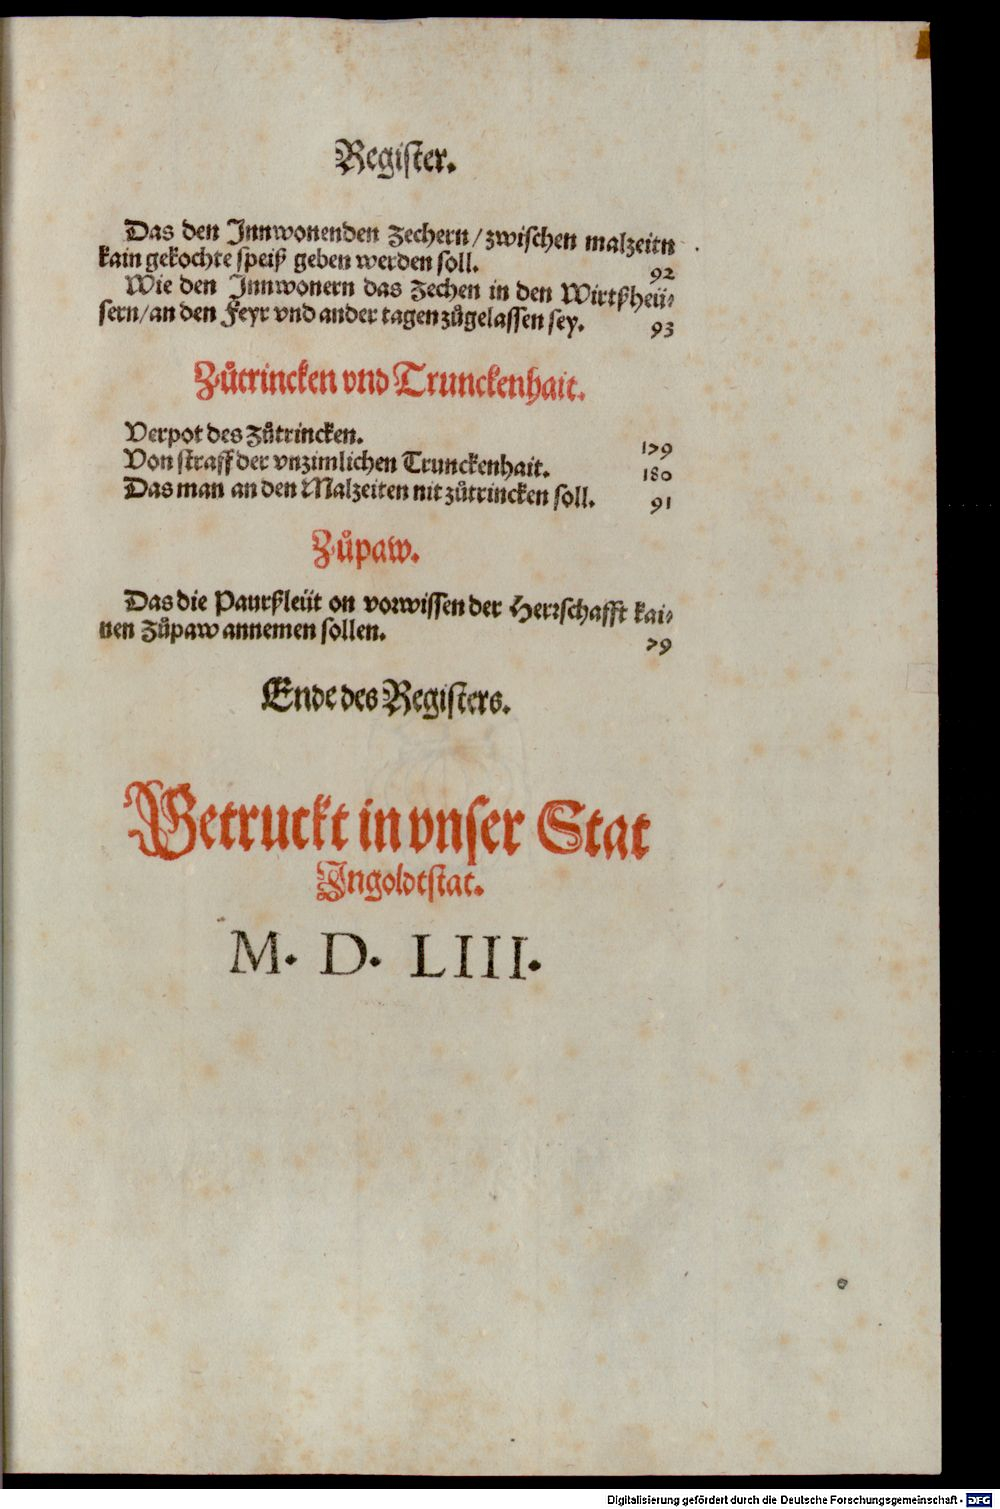 Register.
Das den Innwonenden zechern / zwischen malzeitn
kain gekochte speiß geben werden soll. 92
Wie den Innwonern das zechen in den Wirtßheü⸗
sern / an den Feyr vnd ander tagen zůgelassen sey. 93
Zůtrincken vnd Trunckenhait.
Verpot des zůtrincken. 179
Von straff der vnzimlichen Trunckenhait. 180
Das man an den Malzeiten nit zůtrincken soll. 91
Zůpaw.
Das die Paurßleüt on vorwissen der Herrschafft kai⸗
nen zůpaw annemen sollen. 79
Ende des Registers.
Getruckt in vnser Stat
Ingoldtstat.
M. D. LIII.
Digitalisierung gefördert durch die Deutsche Forschungsgemeinschaft - DFG